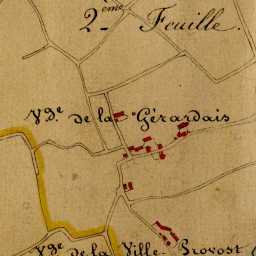 2ème Feuille.
Vge de la Gérardais
Vge de la Ville Provost